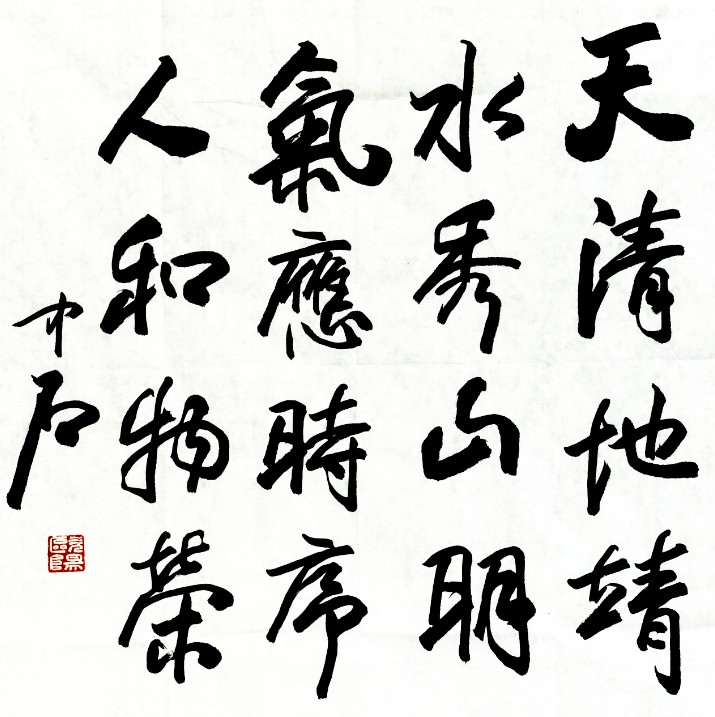 天清地靖
水秀山明
氣應時序
人和物榮
中石